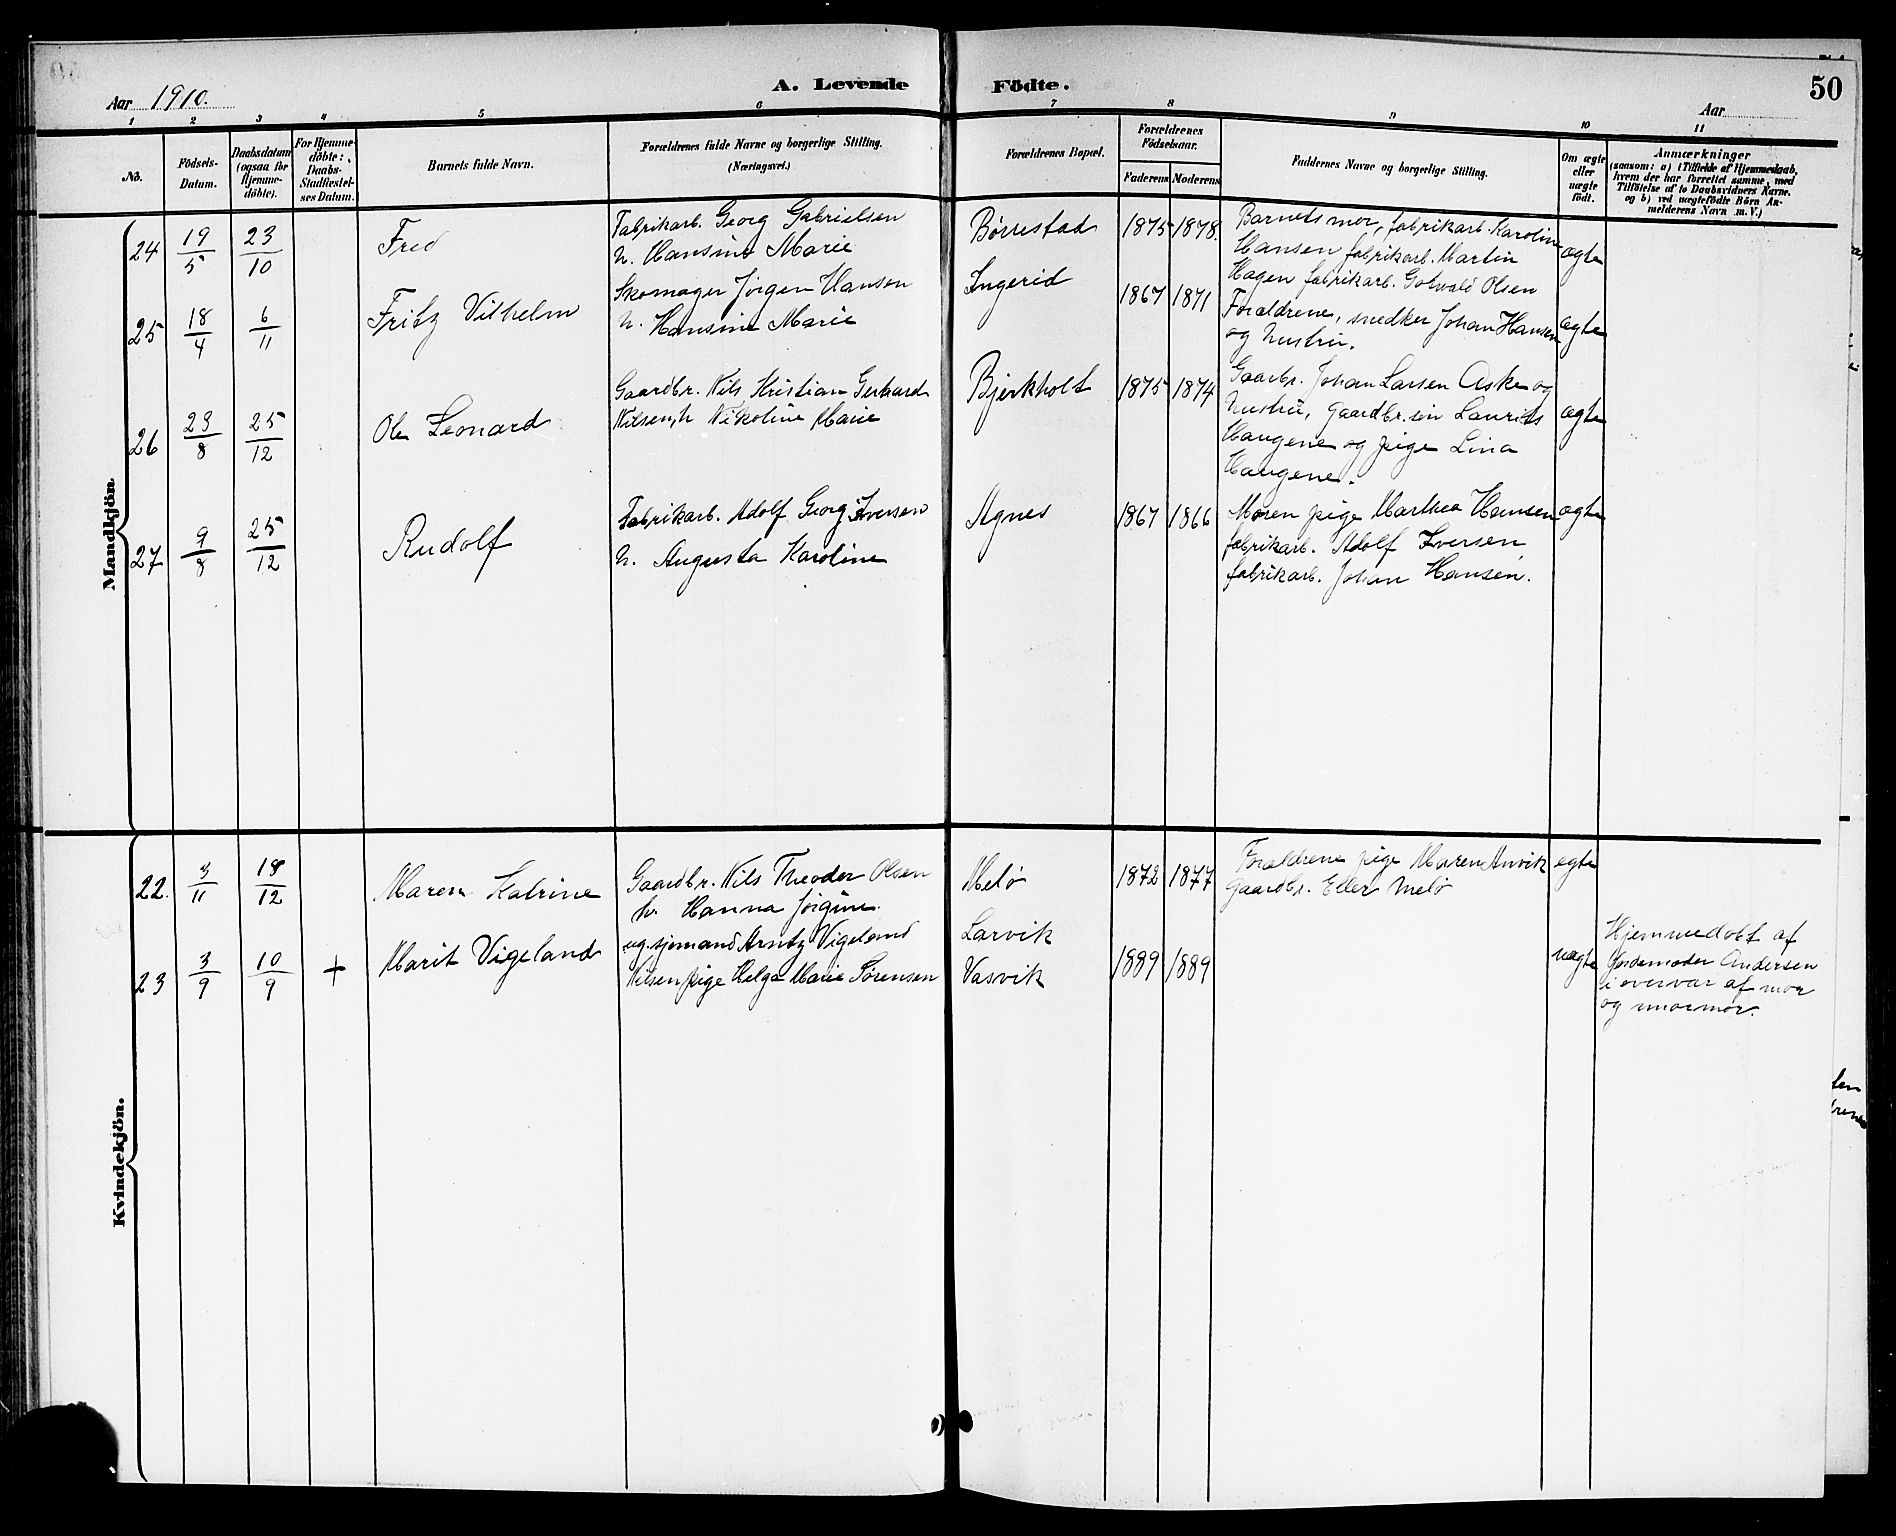 50
Aar 1910.
A. Levende Födte.
Aar
1 2 3 4 5 6 7 8 9 10 11
No.
Födsels-
Datum.
Daabsdatum
(ogsaa for
Hjemme-
döbte).
For Hjemme-
döbte:
Daabs-
Stadfæstel-
ses Datum.
Barnets fulde Navn.
Forældrenes fulde Navne og borgerlige Stilling.
(Næringsvei.)
Forældrenes Bopæl.
Forældrenes
Födselsaar.
Faderens Moderens
Faddernes Navne og borgerlige Stilling.
Om ægte
eller
uægte
født.
Anmærkninger
(saasom: a) i Tilfælde af Hjemmedaab,
hvem der har forrettet samme, med
Tilföielse af to Daabsvidners Navne.
og b) ved uægtefödte Börn An-
melderens Navn m. V.)
Mandkjön.
24 19/5 23/10
Fred
Fabrikarb. Georg Gabrielsen
h. Hansine Marie
Børrestad
1875 1878.
Barnets mor, fabrikarb. Karoline
Hansen fabrikarb. Martin
Hagen fabrikarb. Gotvald Olsen
ægte
25 18/4 6/11
Fritz Vilhelm
Skomager Jørgen Hansen
h. Hansine Marie
Ingerid
1867 1871
Forældrene, snedker Johan Hansen
og hustru.
ægte
26 23/8 25/12
Ole Leonard
Gaardbr. Nils Kristian Gerhard
Nilsen, h Nikoline Marie
Bjerkholt
1875 1874
Gaarbr. Johan Larsen Aske og
hustru, gaardbr. søn Laurits
Haugene og pige Lina
Haugene.
ægte
27 9/8 25/12
Rudolf
Fabrikarb. Adolf Georg Iversen
h. Augusta Karoline
Agnes
1867 1866
Moren pige Marthea Hansen
fabrikarb. Adolf Iversen
fabrikarb. Johan Hansen.
ægte
Kvindekjön.
22. 3/11 18/12
Maren Katrine
Gaardbr. Nils Theodor Olsen
h. Hanna Jørgine.
Melø
1872 1877
Forældrene pige Maren Anvik
Gaardbr. Eller Melø
egte
23 3/9 10/9 +
Marit Vigeland
ug. sjømand Arntz Vigeland
Nilsen pige Helga Marie Sørensen
Larvik
Vasvik
1889 1889
uægte
Hjemmedøbt af
Jordemoder Andersen
i overvær af mor
og mormor.